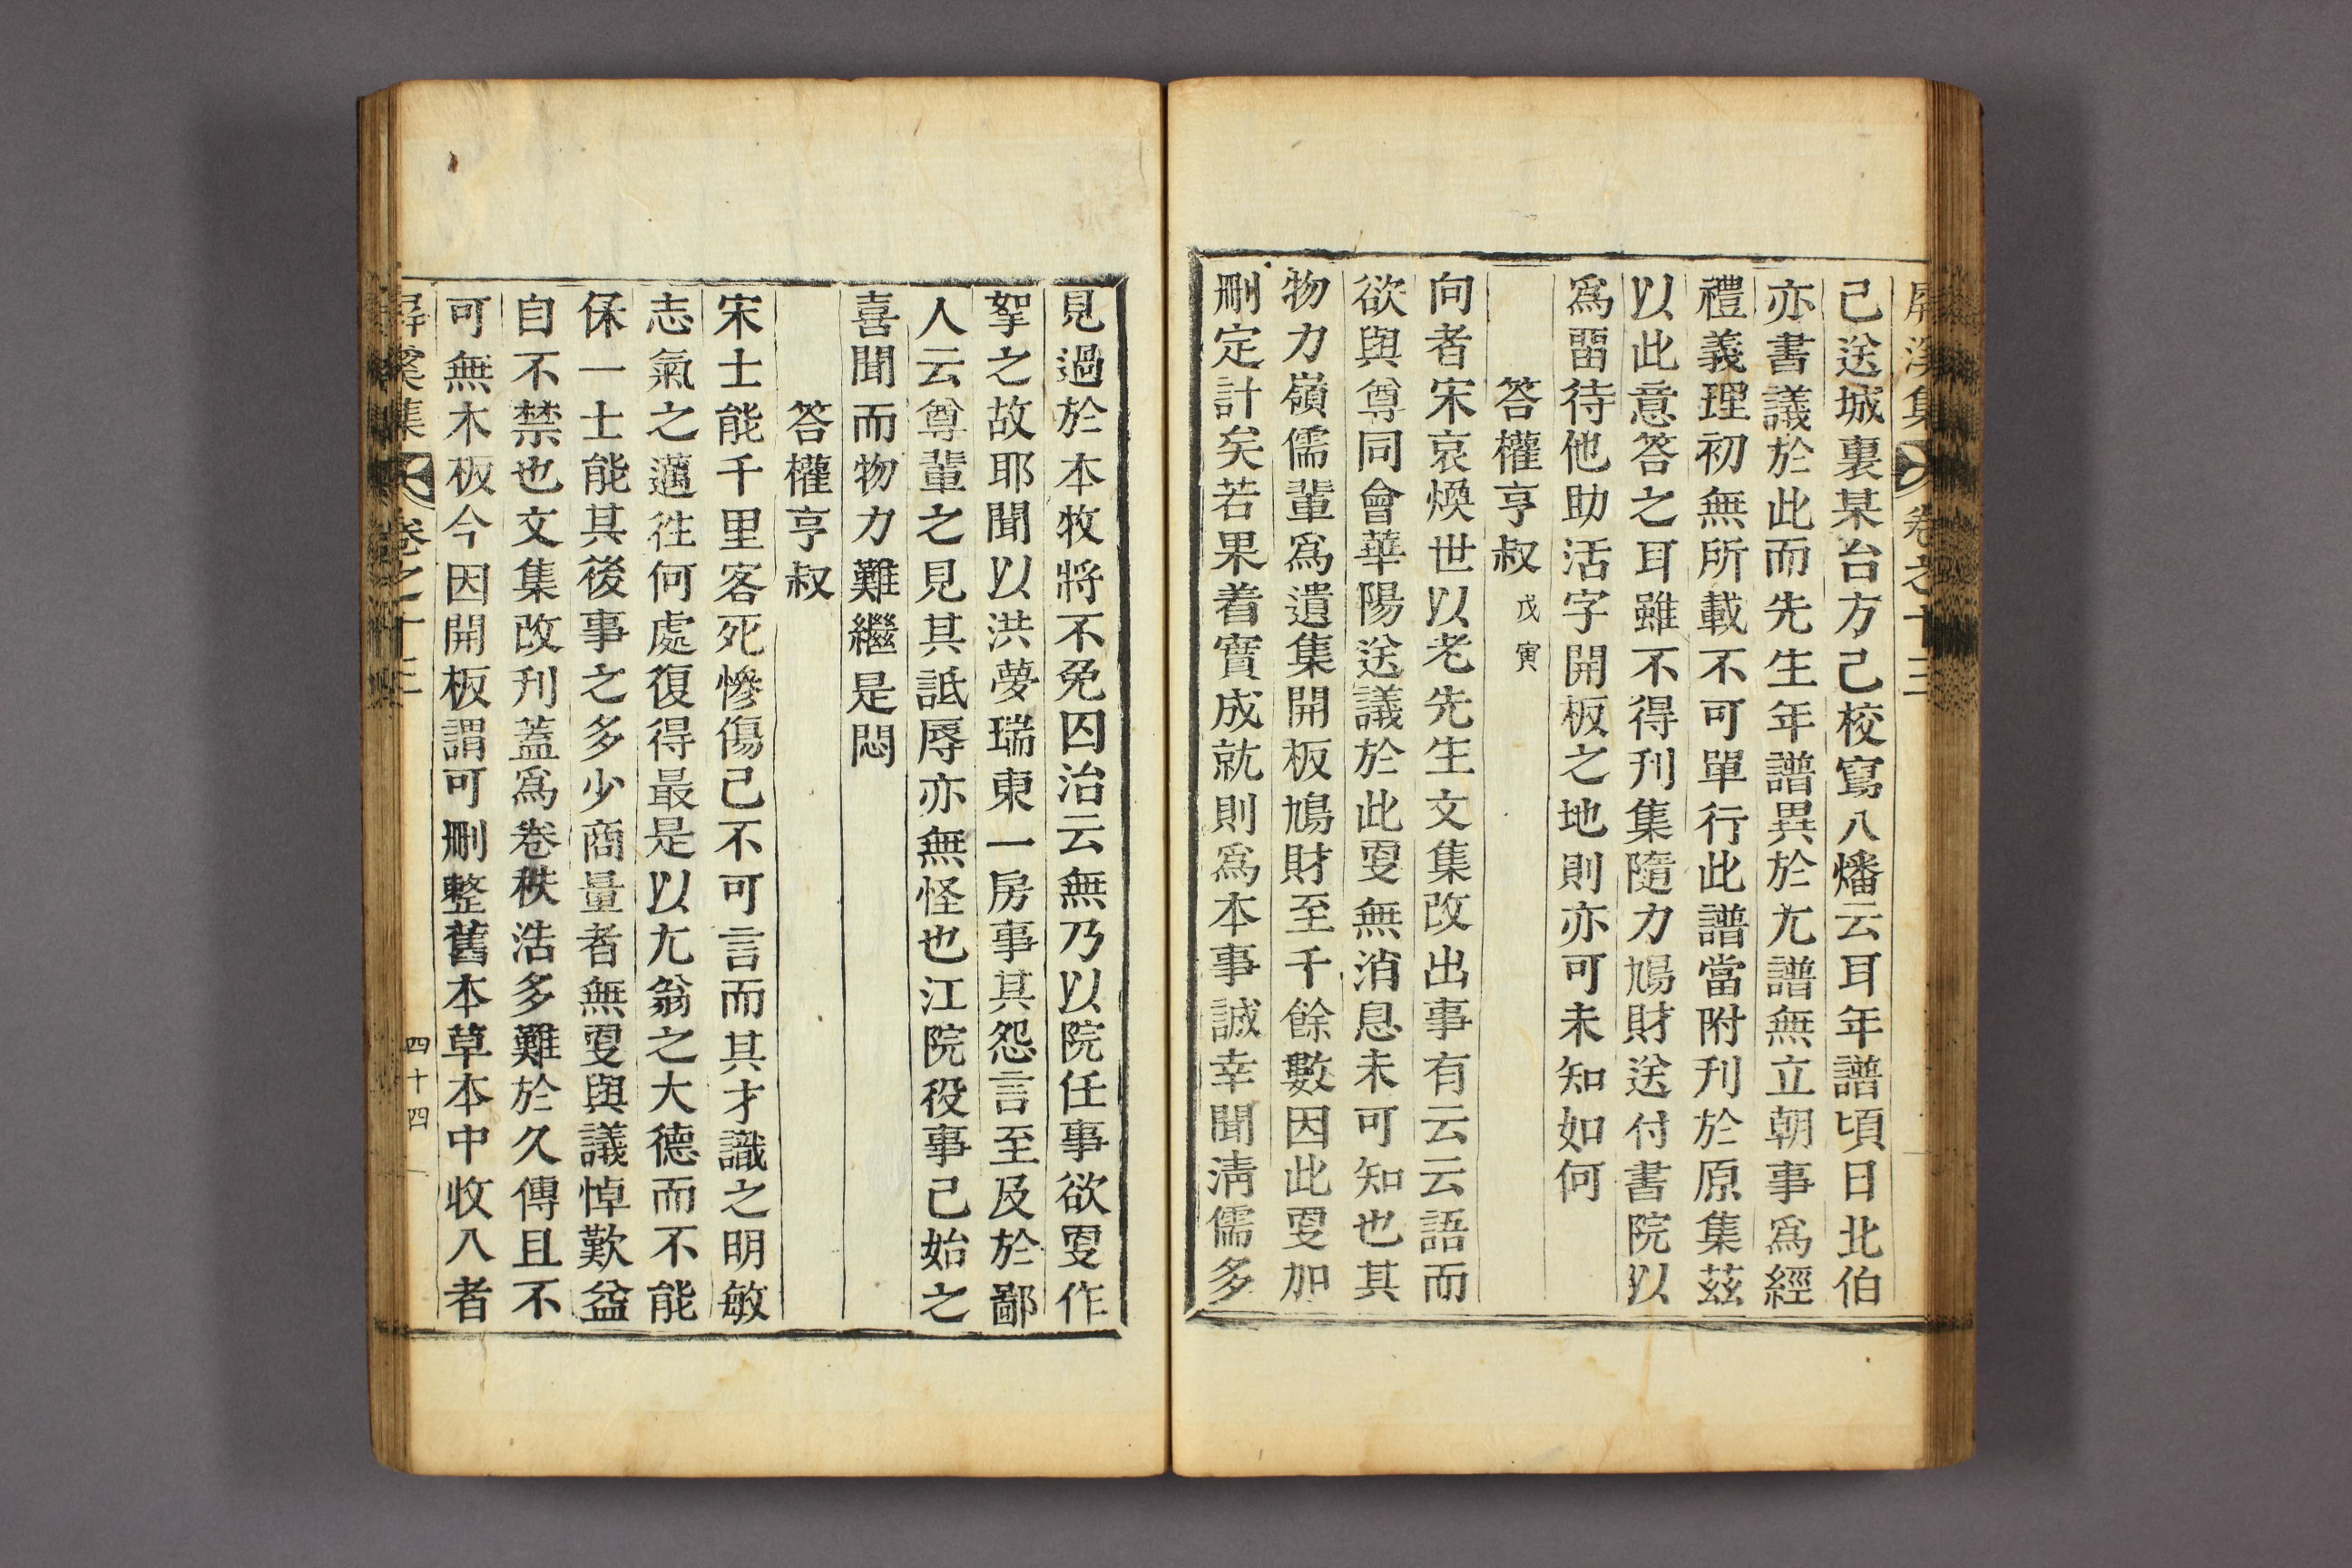 屛溪集 卷之十三
己送城裏某台方己校寫八燔云耳年譜頃日北伯
亦書議於此而先生年譜異於尤譜無立朝事爲經
禮義理初無所載不可單行此譜當附刊於原集茲
以此意答之耳雖不得刊集隨力鳩財送付書院以
爲畱待他助活字開板之地則亦可未知如何
答權亨叔 戊寅
向者宋哀煥世以老先生文集改出事有云云語而
欲與尊同會華陽送議於此更無消息未可知也其
物力嶺儒輩爲遺集開板鳩財至千餘數因此更加
刪定計矣若果着實成就則爲本事誠幸聞淸儒多
見過於本牧將不免囚治云無乃以院任事欲更作
挐之故耶聞以洪夢瑞東一房事其怨言至及於鄙
人云尊輩之見其詆辱亦無怪也江院役事己始之
喜聞而物力難繼是悶
答權亨叔
宋士能千里客死慘傷己不可言而其才識之明敏
志氣之邁往何處復得最是以尤翁之大德而不能
保一士能其後事之多少商量者無更與議悼歎益
自不禁也文集改刊蓋爲卷秩浩多難於久傳且不
可無木板今因開板謂可刪整舊本草本中收入者
屛溪集 卷之十三 四十四